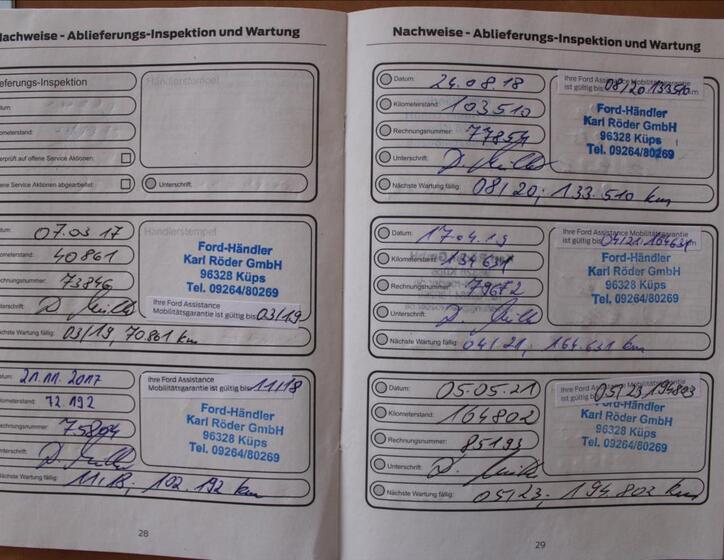 Nachweise - Ablieferungs-Inspektion und Wartung
eferungs-Inspektion
Händlerstempel
tum:
ometerstand:
erprüft auf offene Service Aktionen:
ene Service Aktionen abgearbeitet:
Unterschrift:
07.03.17
ometerstand: 40861
chnungsnummer: 73846
terschrift:
Händlerstempel
Ford-Händler
Karl Röder GmbH
96328 Küps
Tel. 09264/80269
Ihre Ford Assistance
Mobilitätsgarantie ist gültig bis 03/19
chste Wartung fällig: 03/19, 70.861 km
tum: 21.11.2017
ometerstand: 72.192
chnungsnummer: 75804
terschrift:
Ihre Ford Assistance
Mobilitätsgarantie ist gültig bis 11/18
Ford-Händler
Karl Röder GmbH
96328 Küps
Tel. 09264/80269
chste Wartung fällig: 11.18, 102.192 km
28
Nachweise - Ablieferungs-Inspektion und Wartung
Datum: 24.08.18
Kilometerstand: 103510
Rechnungsnummer: 77854
Unterschrift:
Ihre Ford Assistance Mobilitätsgarantie
ist gültig bis 08/20 133510 km
Ford-Händler
Karl Röder GmbH
96328 Küps
Tel. 09264/80269
Nächste Wartung fällig: 08/20, 133.510 km
Datum: 17.04.19
Kilometerstand: 134631
Rechnungsnummer: 79672
Unterschrift:
Ihre Ford Assistance Mobilitätsgarantie
ist gültig bis 04/21 164631 km
Ford-Händler
Karl Röder GmbH
96328 Küps
Tel. 09264/80269
Nächste Wartung fällig: 04/21, 164.631 km
Datum: 05.05.21
Kilometerstand: 164802
Rechnungsnummer: 85193
Unterschrift:
Ihre Ford Assistance Mobilitätsgarantie
ist gültig bis 05/23 194803
Ford-Händler
Karl Röder GmbH
96328 Küps
Tel. 09264/80269
Nächste Wartung fällig: 05/23, 194.802 km
29